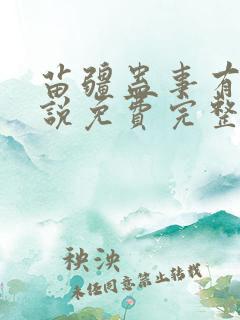 苗疆蛊事有
说免费完整
秧泱
未经同意禁止转载